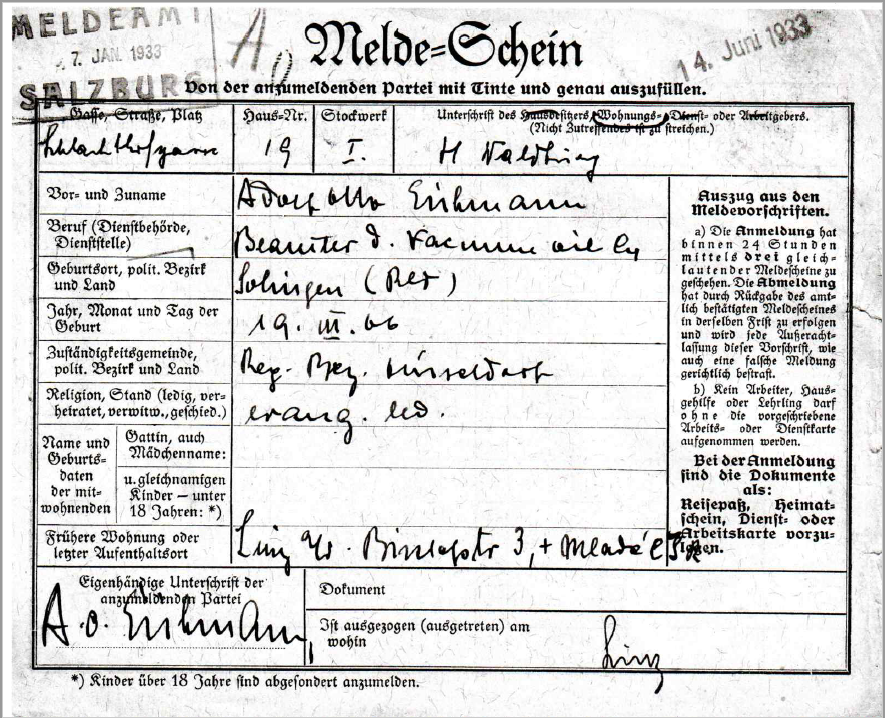 MELDEAMT
7. JAN. 1933
SALZBURG
14. Juni 1933
Melde=Schein
Von der anzumeldenden Partei mit Tinte und genau auszufüllen.
Gasse, Straße, Platz
Haus=Nr.
Stockwerk
Unterschrift des Hausbesitzers, Wohnungs=, Dienst= oder Arbeitgebers.
(Nicht Zutreffendes ist zu streichen.)
19
I.
Vor= und Zuname
Adolf Otto Eichmann
Beruf (Dienstbehörde,
Dienststelle)
Beamter d. Vacuum Oil Cy
Geburtsort, polit. Bezirk
und Land
Solingen
Jahr, Monat und Tag der
Geburt
19. III. 06
Zuständigkeitsgemeinde,
polit. Bezirk und Land
Reg. Bez. Düsseldorf
Religion, Stand (ledig, ver=
heiratet, verwitw., geschied.)
evang. led.
Name und
Geburts=
daten
der mit=
wohnenden
Gattin, auch
Mädchenname:
u. gleichnamigen
Kinder — unter
18 Jahren: *)
Frühere Wohnung oder
letzter Aufenthaltsort
Linz a/D. Bischofstr 3,
Auszug aus den
Meldevorschriften.
a) Die Anmeldung hat
binnen 24 Stunden
mittels drei gleich=
lautender Meldescheine zu
geschehen. Die Abmeldung
hat durch Rückgabe des amt=
lich bestätigten Meldescheines
in derselben Frist zu erfolgen
und wird jede Außeracht=
lassung dieser Vorschrift, wie
auch eine falsche Meldung
gerichtlich bestraft.
b) Kein Arbeiter, Haus=
gehilfe oder Lehrling darf
ohne die vorgeschriebene
Arbeits= oder Dienstkarte
aufgenommen werden.
Bei der Anmeldung
sind die Dokumente
als:
Reisepaß, Heimat=
schein, Dienst= oder
Arbeitskarte vorzu=
legen.
Eigenhändige Unterschrift der
anzumeldenden Partei
A. O. Eichmann
Dokument
Ist ausgezogen (ausgetreten) am
wohin
Linz
*) Kinder über 18 Jahre sind abgesondert anzumelden.